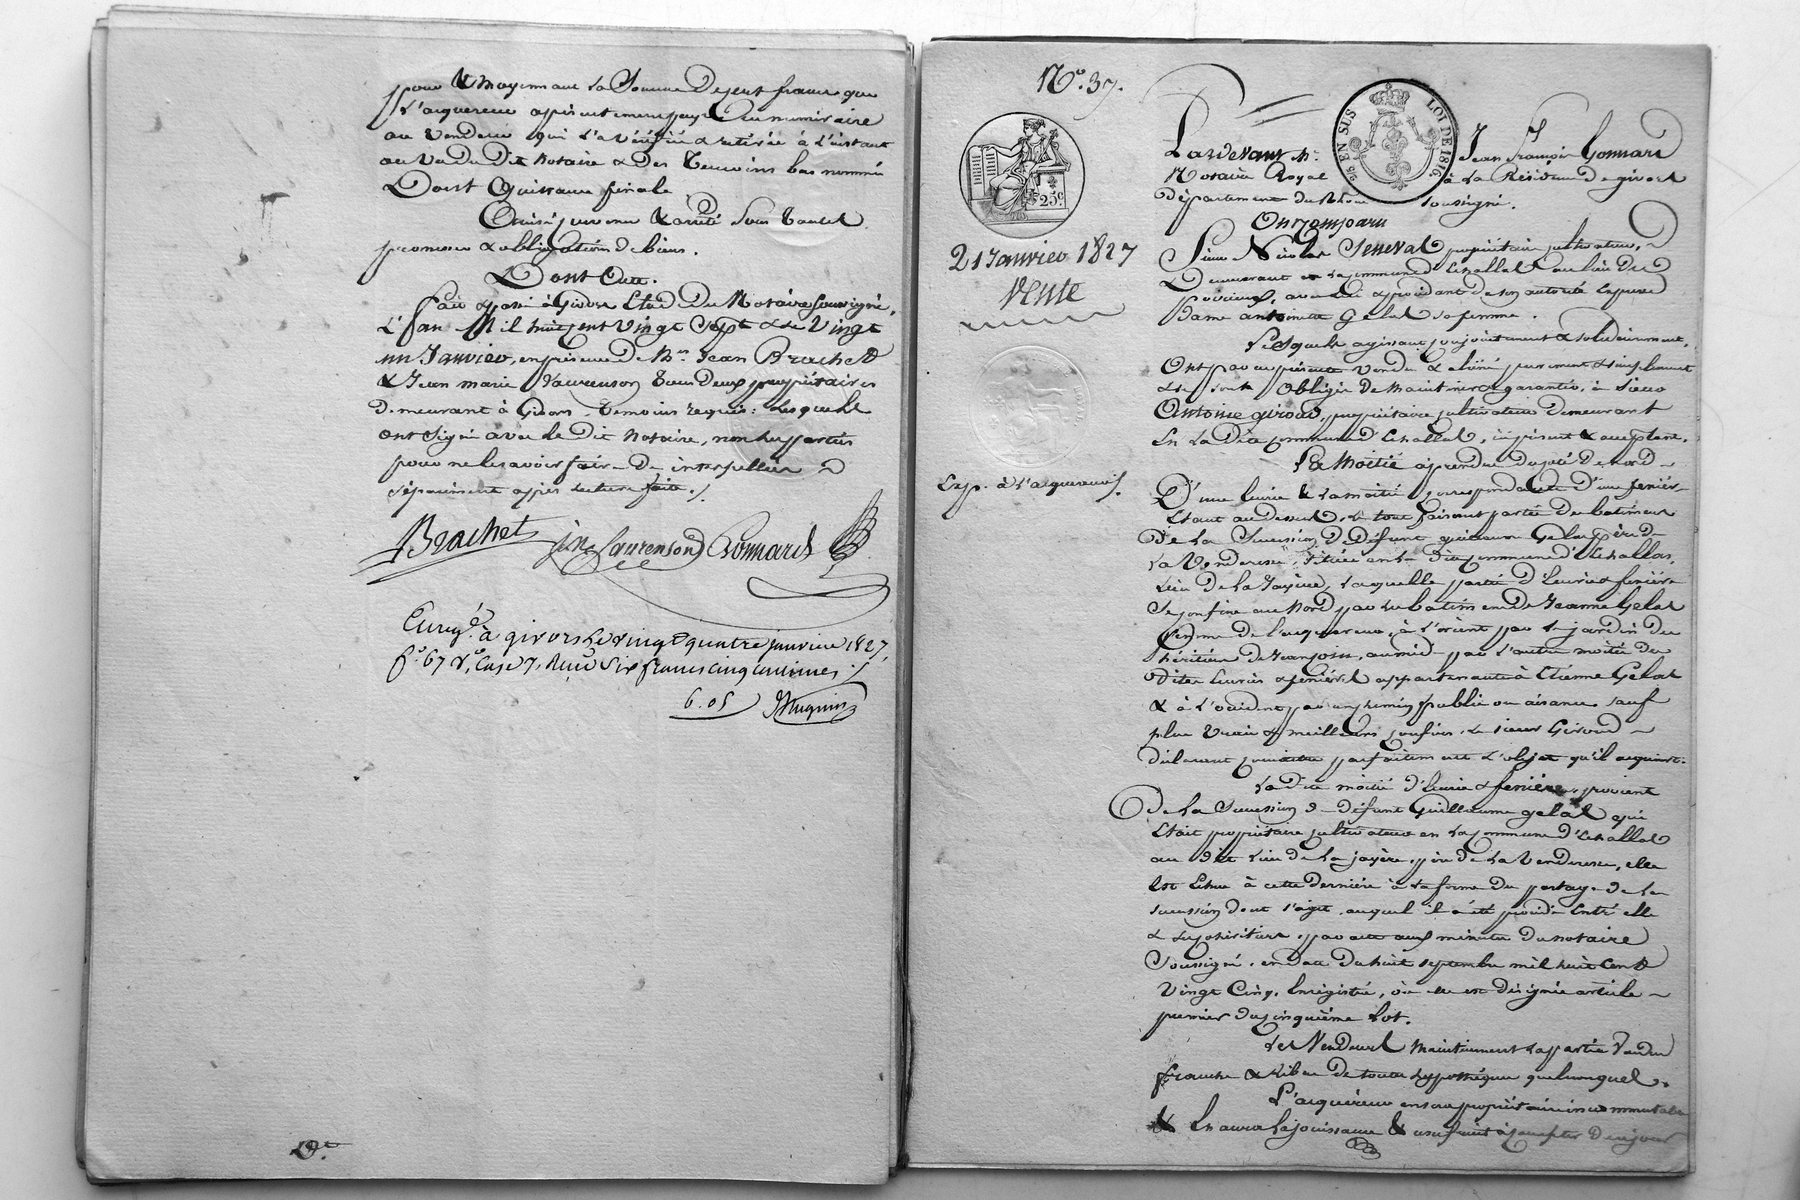 pour & moyennant la somme de cent francs que
l'acquereur a présentement payé en numeraire
au vendeur qui l'a vérifiée & retirée à l'instant
au vu du dit notaire & des temoins bas nommés
Dont quittance finale.
Ainsi convenu & arrêté sous toutes
promesses & obligations de biens.
Dont Acte.
Fait & passé à Givors Etude du Notaire soussigné,
L'an Mil huit cent vingt sept & le vingt
un Janvier, en présence de Mrs Jean Brachet
& Jean marie Laurenson tous deux propriétaires
demeurant à Givors, temoins requis: lesquels
ont signé avec le dit notaire, non les parties
pour ne le savoir faire de interpellées
séparément après lecture faite ./.
Brachet jn Laurenson Gonnard
Enregé à givors le vingt quatre janvier 1827,
fo 67 vo, Case 7, Reçu six francs cinq centimes ./.
6.05 Huguin
No. 37.
25 EN SUS LOI DE 1816.
25c
21 Janvier 1827
Vente
Exp. à l'acquereur ./.
Pardevant Me Jean François Gonnard
Notaire Royal à la Résidence de givors
département du Rhône soussigné.
Ont comparu
Sieur Nicolas Seneval propriétaire cultivateur,
Demeurant en la commune d'Echallas au lieu du
, avec lui & procédant de son autorité expresse
Dame antoinette Gelas sa femme.
Lesquels agissant conjointement & solidairement,
Ont par ces présentes vendu & cédé purement & simplement
& se sont obligés de maintenir & garantir, à sieur
Antoine giroud, propriétaire cultivateur demeurant
En la dite commune d'Echallas, ici présent & acceptant,
La Moitié à prendre du côté de nord
D'une Ecurie & la moitié correspondante d'une fenière
Etant au dessus, le tout faisant partie des batiments
de la Succession de défunt guillaume Gelas père de
la Venderesse, située en la dite commune d'Echallas,
Lieu de la Jayère, laquelle partie d'Ecurie & fenière
se confine au Nord par les batiments de Jeanne Gelas
femme de l'acquereur, à l'orient par le jardin des
héritiers de , au midi par l'autre moitié des
dites Ecurie & fenière appartenante à Etienne Gelas
& à l'occident par un chemin public ou aisance, sauf
plus vrais & meilleurs confins, le sieur Giroud
déclarant connaitre parfaitement l'objet qu'il acquiert.
La dite moitié d'Ecurie & fenière, provient
De la Succession de défunt Guillaume gelas qui
Etait propriétaire cultivateur en la commune d'Echallas
au dit Lieu de la jayère, père de la Venderesse, elle
est échue à cette dernière à la forme du partage de la
succession dont s'agit, auquel il a été procédé entre elle
& ses cohéritiers, par acte aux minutes du notaire
Soussigné, en date du huit septembre mil huit cent
Vingt Cinq, Enregistré, où elle est désignée article
premier du cinquième lot.
Les Vendeurs maintiennent la partie vendue
franche & libre de toutes hypothèques quelconques.
L'acquéreur en sera propriétaire incommutable
& En aura la jouissance & usufruit à compter de ce jour